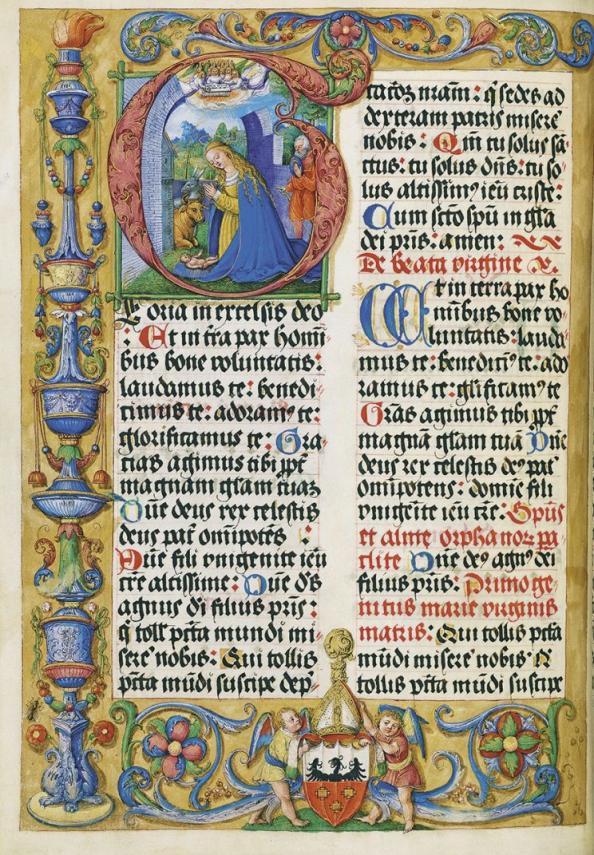 G
loria in excelsis deo
: Et in tra pax homi
bus bone voluntatis:
laudamus te: benedi
cimus te: adoramꝰ te:
glorificamus te: Gra
tias agimus tibi ppt
magnam gloriam tuam
Dne deus rex celestis
deus pat omipotes :
Dne fili vnigenite ieu
xpe altissime: Dne ds
agnus di filius pris:
q toll pcta mundi mi
sere nobis: Qui tollis
pcta mudi suscipe dep
catioꝫ nram: q sedes ad
dexteram patris misere
nobis: Qm tu solus sa
ctus: tu solus dns: tu so
lus altissimꝰ ieu xpiste:
Cum scto spu in gla
dei pris: amen:
De beata virgine
Et in terra pax ho
minibus bone vo
luntatis: lauda
mus te: benedicimꝰ te: ado
ramus te: glificamꝰ te
Gras agimus tibi ppt
magna glam tua Dne
deus rex celestis deꝰ pat
omipotens: domie fili
vnigenite ieu xpe: Spus
et alme orphanoꝝ pa
clite Dne deꝰ agnꝰ dei
filius pris: Primoge
nitus marie virginis
matris: Qui tollis pcta
mudi misere nobis Q
tollis pcta mudi suscipe